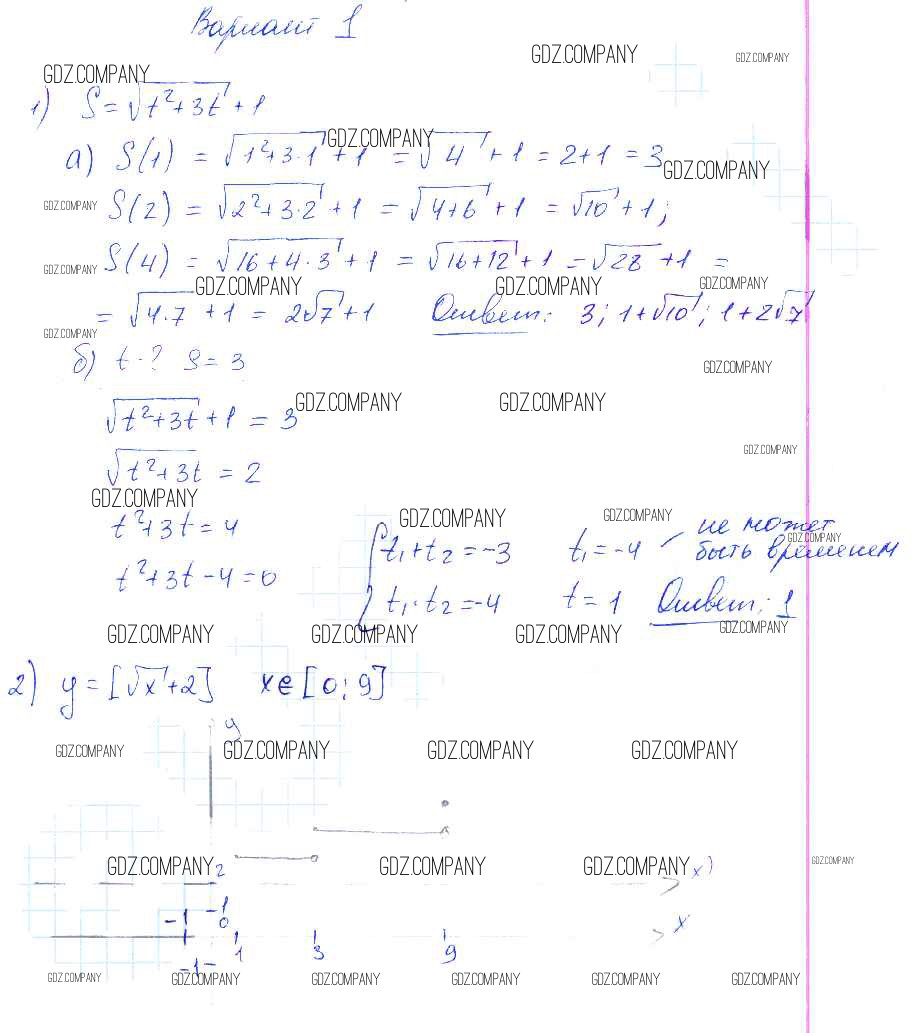 Вариант 1
GDZ.COMPANY GDZ.COMPANY
GDZ.COMPANY
1) S = √(t²+3t) + 1
GDZ.COMPANY
а) S(1) = √(1²+3·1) + 1 = √4 + 1 = 2+1 = 3
GDZ.COMPANY
GDZ.COMPANY S(2) = √(2²+3·2) + 1 = √(4+6) + 1 = √10 + 1;
GDZ.COMPANY S(4) = √(16+4·3) + 1 = √(16+12) + 1 = √28 + 1 =
GDZ.COMPANY GDZ.COMPANY GDZ.COMPANY
= √(4·7) + 1 = 2√7 + 1 Ответ: 3; 1+√10; 1+2√7
GDZ.COMPANY
б) t-? S = 3
GDZ.COMPANY
GDZ.COMPANY GDZ.COMPANY
√(t²+3t) + 1 = 3
GDZ.COMPANY
√(t²+3t) = 2
GDZ.COMPANY
GDZ.COMPANY GDZ.COMPANY
t²+3t = 4
не может
GDZ.COMPANY
t₁+t₂ = -3 t₁ = -4 быть временем
t²+3t-4 = 0
t₁·t₂ = -4 t = 1 Ответ: 1
GDZ.COMPANY GDZ.COMPANY GDZ.COMPANY GDZ.COMPANY
2) y = [√x+2] x∈[0; 9]
y
GDZ.COMPANY GDZ.COMPANY GDZ.COMPANY GDZ.COMPANY
GDZ.COMPANY 2 GDZ.COMPANY GDZ.COMPANY x) GDZ.COMPANY
-1 -1
0
x
1 3 9
-1
GDZ.COMPANY GDZ.COMPANY GDZ.COMPANY GDZ.COMPANY GDZ.COMPANY GDZ.COMPANY